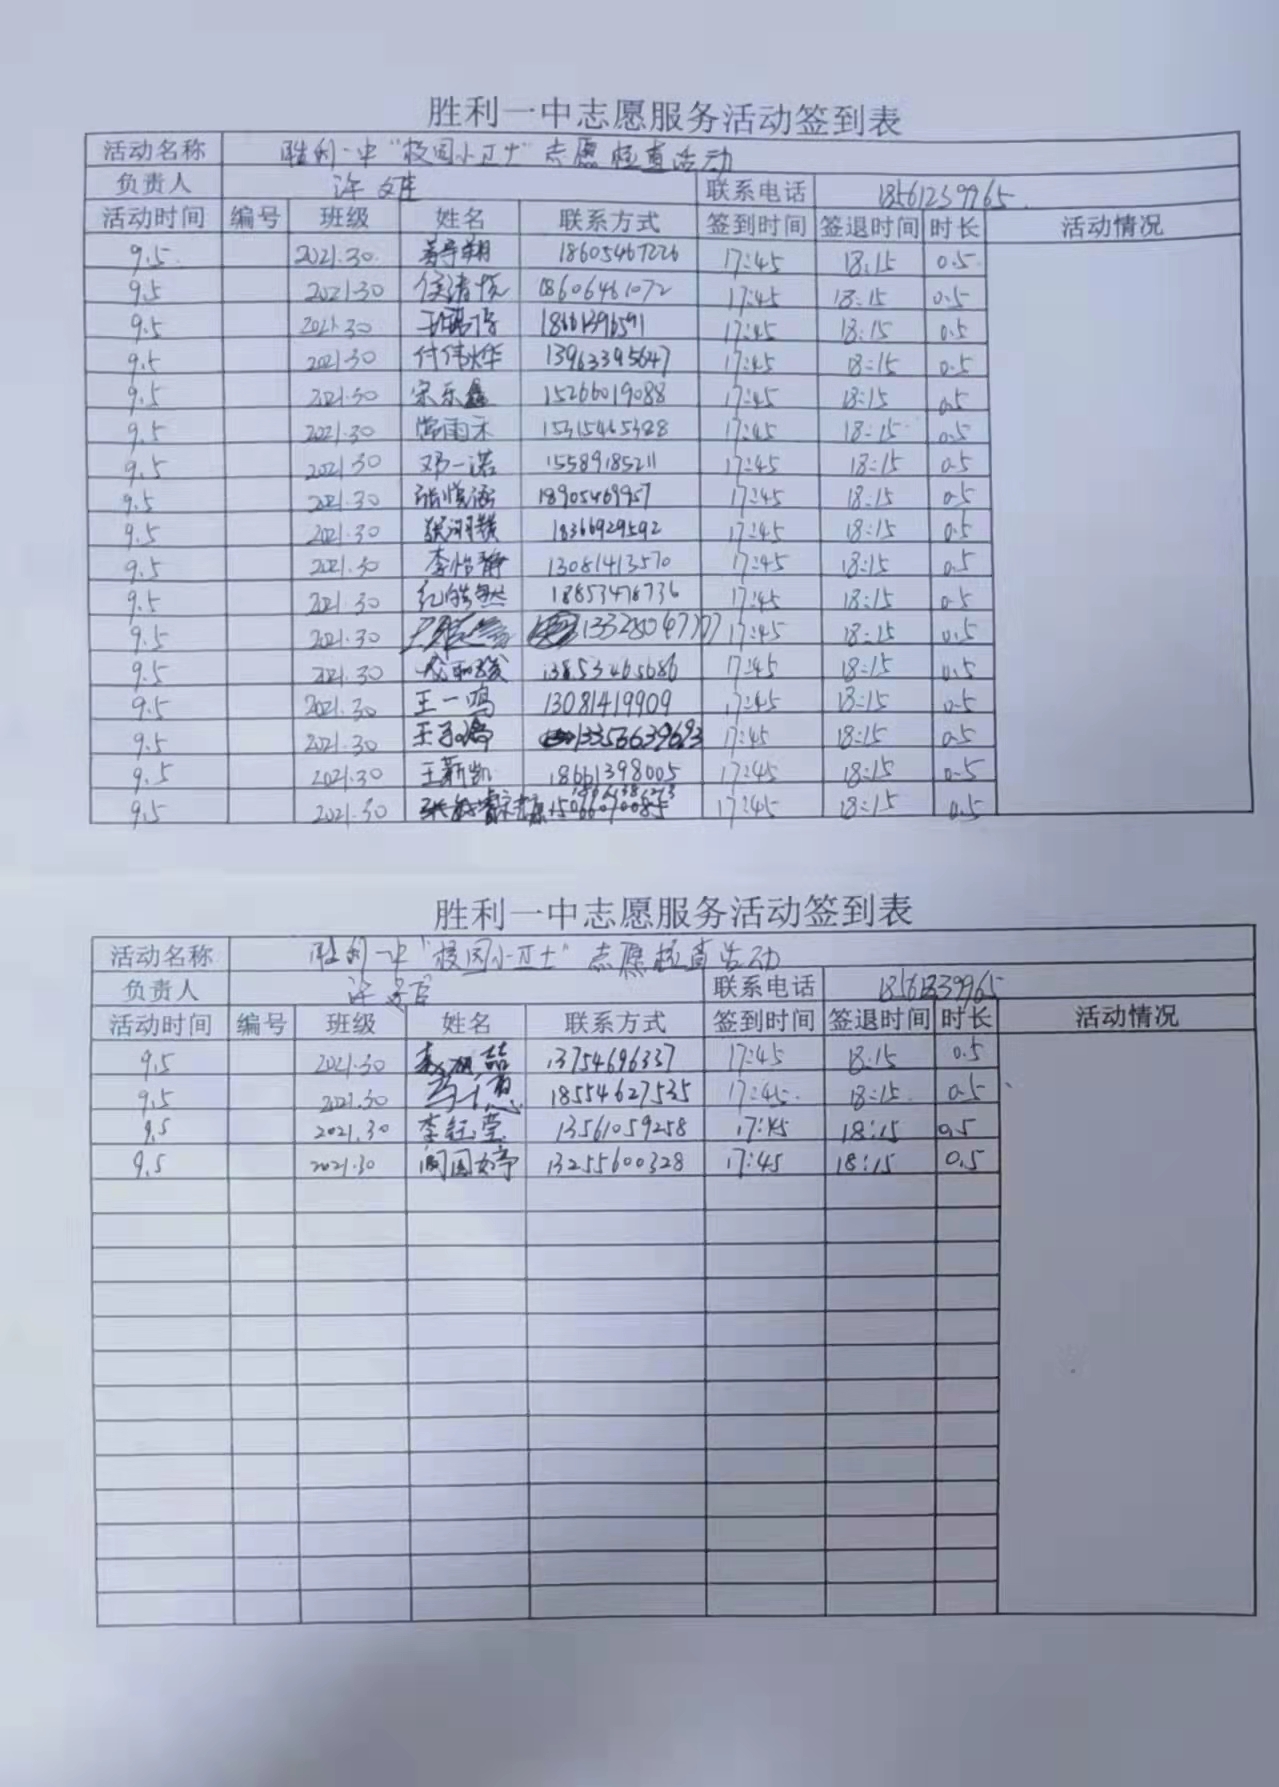 胜利一中志愿服务活动签到表
活动名称 胜利一中"校园小卫士"志愿检查活动
负责人 许 联系电话 18561239965
活动时间 编号 班级 姓名 联系方式 签到时间 签退时间 时长 活动情况
9.5 2021.30 18605467226 17:45 18:15 0.5
9.5 2021.30 18606461072 17:45 18:15 0.5
9.5 2021.30 18661396591 17:45 18:15 0.5
9.5 2021.30 付伟烨 13963395647 17:45 18:15 0.5
9.5 2021.30 宋乐鑫 15266019088 17:45 18:15 0.5
9.5 2021.30 常雨禾 15315465328 17:45 18:15 0.5
9.5 2021.30 邓一诺 15589185211 17:45 18:15 0.5
9.5 2021.30 张悦涵 18905469957 17:45 18:15 0.5
9.5 2021.30 18366929592 17:45 18:15 0.5
9.5 2021.30 李怡静 13081413570 17:45 18:15 0.5
9.5 2021.30 纪皓然 18853476736 17:45 18:15 0.5
9.5 2021.30 17:45 18:15 0.5
9.5 2021.30 13853465686 17:45 18:15 0.5
9.5 2021.30 王一鸣 13081419909 17:45 18:15 0.5
9.5 2021.30 17:45 18:15 0.5
9.5 2021.30 王新凯 18661398005 17:45 18:15 0.5
9.5 2021.30 15066070085 17:45 18:15 0.5
胜利一中志愿服务活动签到表
活动名称 胜利一中"校园小卫士"志愿检查活动
负责人 许 联系电话
活动时间 编号 班级 姓名 联系方式 签到时间 签退时间 时长 活动情况
9.5 2021.30 13754696337 17:45 18:15 0.5
9.5 2021.30 18554627535 17:45 18:15 0.5
9.5 2021.30 李钰莹 13561059258 17:45 18:15 0.5
9.5 2021.30 闫国婷 13255600328 17:45 18:15 0.5